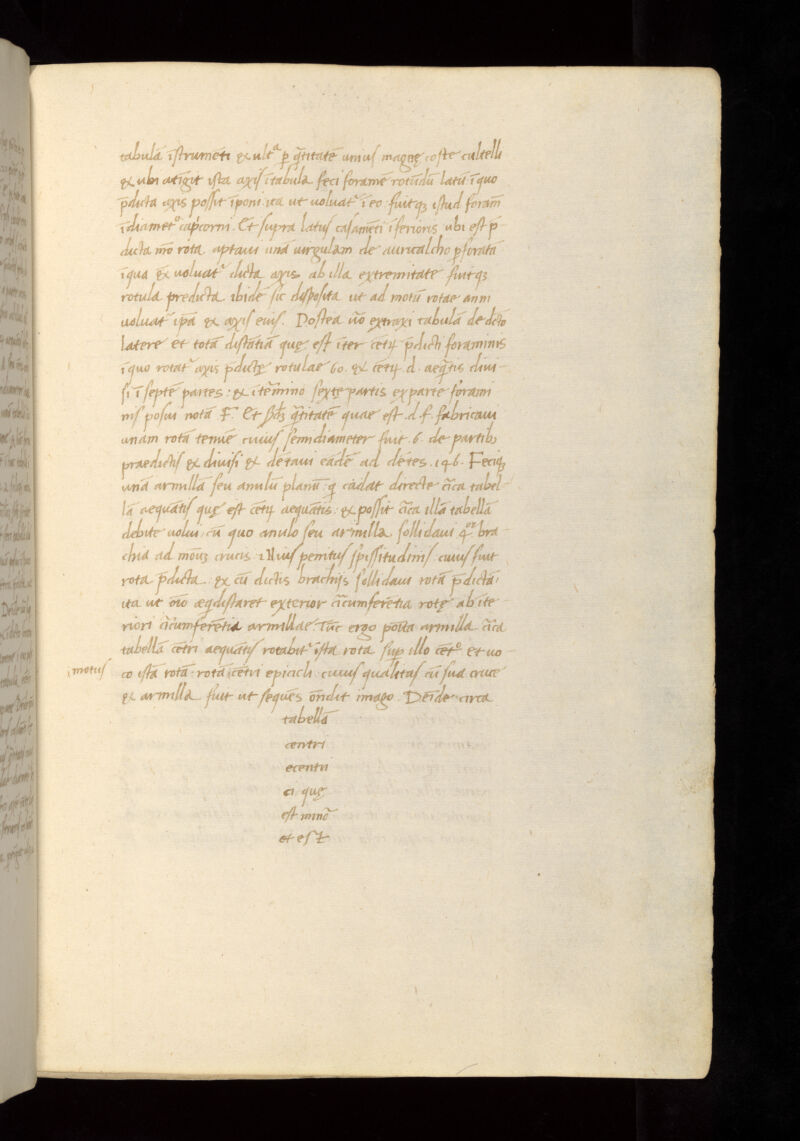 tabulā īstrumēti & ultᵃ p q̄titatē unius magnę coste cultelli
& ubi atīgit ista axis ītabula feci foramē rotūdū latū ī quo
p̄dicta axis possit īponi ita ut voluatᵣ ī eo fuitq; istud foram̄
ī diametᵒ cap̄corni. Et supra latus casamēti īferioris ubi est p̄
dicta mō rota aptavi unā virgulam de auricalcho p̄foratā
ī qua & voluatᵣ dicta axis ab illa extremitate fuitq;
rotula predicta ibidē sic disposita ut ad motū rotae anni
voluat ip̄a & axis eius. Postea v̄o extraxi tabulā de dc̄to
latere et totā distātiā quę est īter cētȝ p̄dicti foraminis
ī quo rotatᵣ axis p̄dictę rotulae 60. & cētȝ d. aeq̄tis divi
si ī septē partes: & ī t̄mino sextę partis ex parte forami
nis posui notā F. Et s̄bȝ q̄titatē quae est d. f. fabricavi
unam rotā tenuē cuius semidiameter fuit 6. de partibȝ
praedictis & divisi & dētavi eādē ad dētes .146. Feciq;
unā armillā seu anulū planū: q̄ cadat directe cīca tabel
lā aequātis quę est cētȝ aequātis: & possit cīca illā tabellā
debite volvi: cū quo anulo seu armilla sollidavi 4ᵒʳ bra
chia ad modȝ crucis illius penitus spissitudinis cuius fuit
rota p̄dicta. & cū dictis brachijs sollidavi rotā p̄dictā:
ita ut oīo aeq̄distaret exterior cīcumferētia rotę ab īte
riori cīcumferētia armillae. Tūc ergo posita armilla cīca
tabellā cētri aequātis rotabitᵣ ista rota sup̄ illo cētᵒ. et vo
motus
co istā rotā: rotā cētri epicicli: cuius qualitas cū sua cruce
& armilla fuit ut sequēs ōndit imago. Deīde circa
tabellā
centri
ecentri
ci quę
est minoᵣ
et est